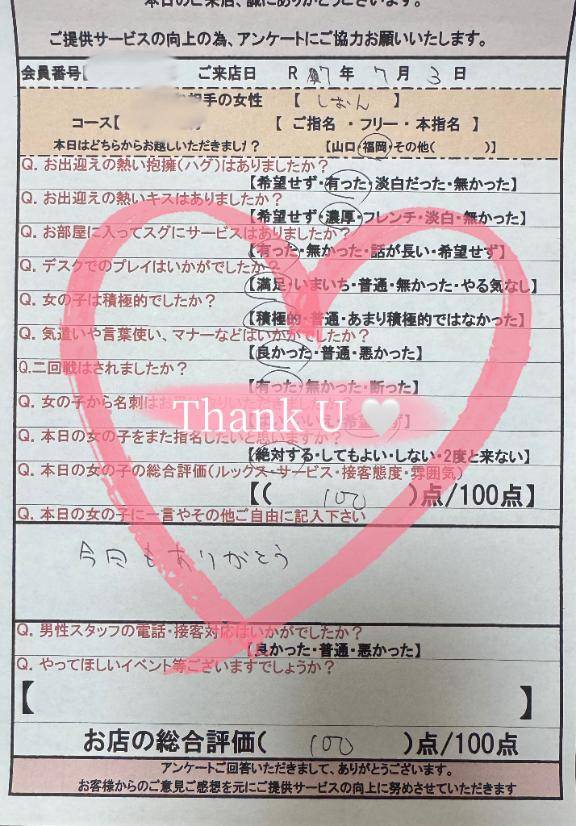 本日のご来店、誠にありがとうございます。
ご提供サービスの向上の為、アンケートにご協力お願いいたします。
会員番号【 ご来店日 R 7 年 7 月 3 日
相手の女性 【 しおん 】
コース【 【 ご指名 ・ フリー ・ 本指名 】
本日はどちらからお越しいただきました? 【山口・福岡・その他( )】
Q. お出迎えの熱い抱擁(ハグ)はありましたか?
【希望せず・有った・淡白だった・無かった】
Q. お出迎えの熱いキスはありましたか?
【希望せず・濃厚・フレンチ・淡白・無かった】
Q. お部屋に入ってスグにサービスはありましたか?
【有った・無かった・話が長い・希望せず】
Q. デスクでのプレイはいかがでしたか?
【満足・いまいち・普通・無かった・やる気なし】
Q. 女の子は積極的でしたか?
【積極的・普通・あまり積極的ではなかった】
Q. 気遣いや言葉使い、マナーなどはいかがでしたか?
【良かった・普通・悪かった】
Q.二回戦はされましたか?
【有った・無かった・断った】
Q. 女の子から名刺は
Thank U 🤍
Q. 本日の女の子をまた指名したいと思いますか?
【絶対する・してもよい・しない・2度と来ない】
Q. 本日の女の子の総合評価(ルックス・サービス・接客態度・雰囲気)
【( 100 )点/100点】
Q. 本日の女の子に一言やその他ご自由に記入下さい
今回もありがとう
Q. 男性スタッフの電話・接客対応はいかがでしたか?
【良かった・普通・悪かった】
Q. やってほしいイベント等ございますでしょうか?
【 】
お店の総合評価( 100 )点/100点
アンケートご回答いただきまして、ありがとうございます。
お客様からのご意見ご感想を元にご提供サービスの向上に努めさせていただきます